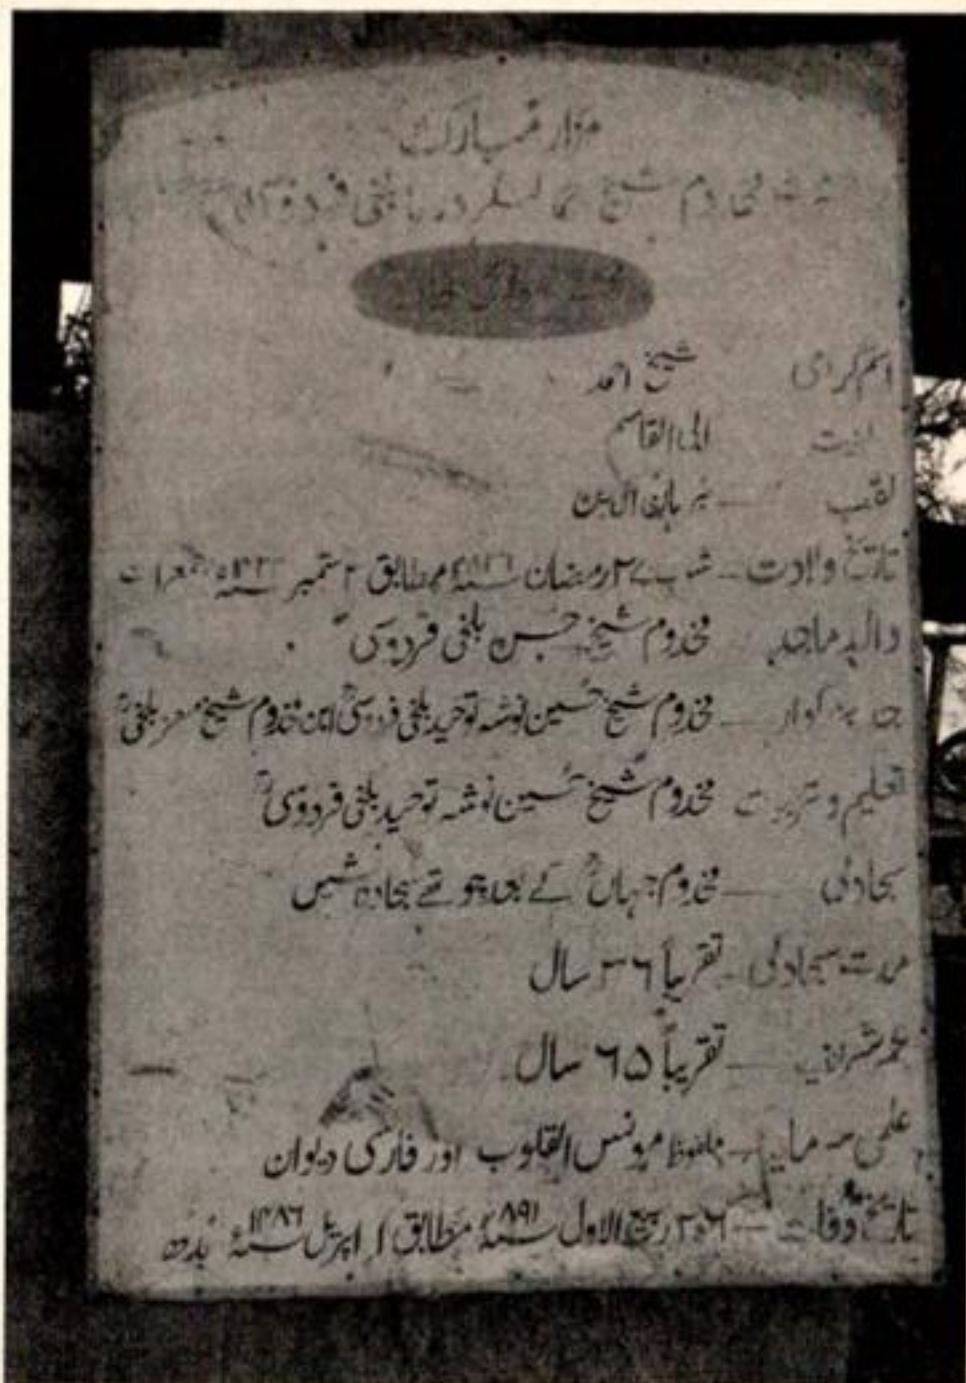 مزار مبارک
مخدوم شیخ احمد لنگر دریا بلخی فردوسی
اسم گرامی شیخ احمد
ابی القاسم
لقب — برہان الدین
تاریخ ولادت — شب ۲۷ رمضان سنہ ۸۲۶ھ مطابق ۲ ستمبر سنہ جمعرات
والد ماجد مخدوم شیخ حسن بلخی فردوسیؒ
جد بزرگوار — مخدوم شیخ حسین نوشہ توحید بلخی فردوسیؒ ابن مخدوم شیخ معز بلخیؒ
تعلیم و تربیت مخدوم شیخ حسین نوشہ توحید بلخی فردوسیؒ
سجادگی — مخدوم جہاںؒ کے بعد چوتھے سجادہ نشیں
مدت سجادگی — تقریباً ۳۶ سال
عمر شریف — تقریباً ۶۵ سال
علمی سرمایہ — ملفوظ مونس القلوب اور فارسی دیوان
تاریخ وفات — ربیع الاول سنہ ۸۹۱ھ مطابق اپریل سنہ ۱۴۸۶ بدھ